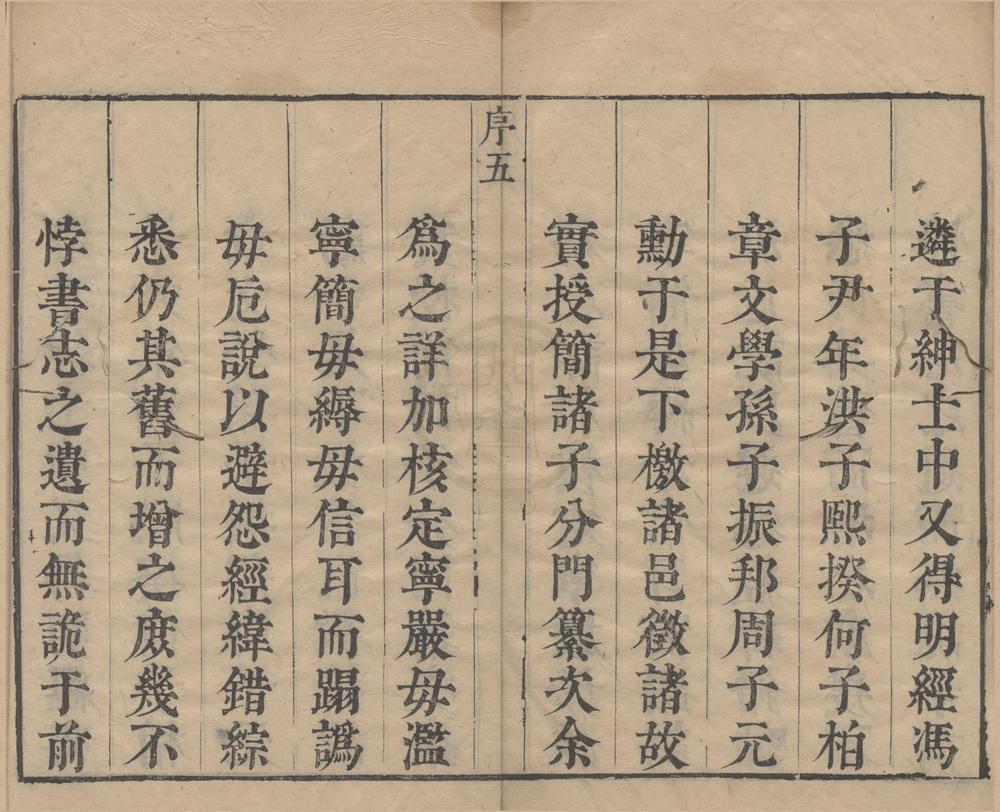 遴于紳士中又得明經馮
子尹年洪子熙揆何子柏
章文學孫子振邦周子元
勳于是下檄諸邑徵諸故
實授簡諸子分門纂次余
序五
爲之詳加核定寧嚴毋濫
寧簡毋縟毋信耳而蹋譌
毋卮說以避怨經緯錯綜
悉仍其舊而增之庶幾不
悖書志之遺而無詭于前